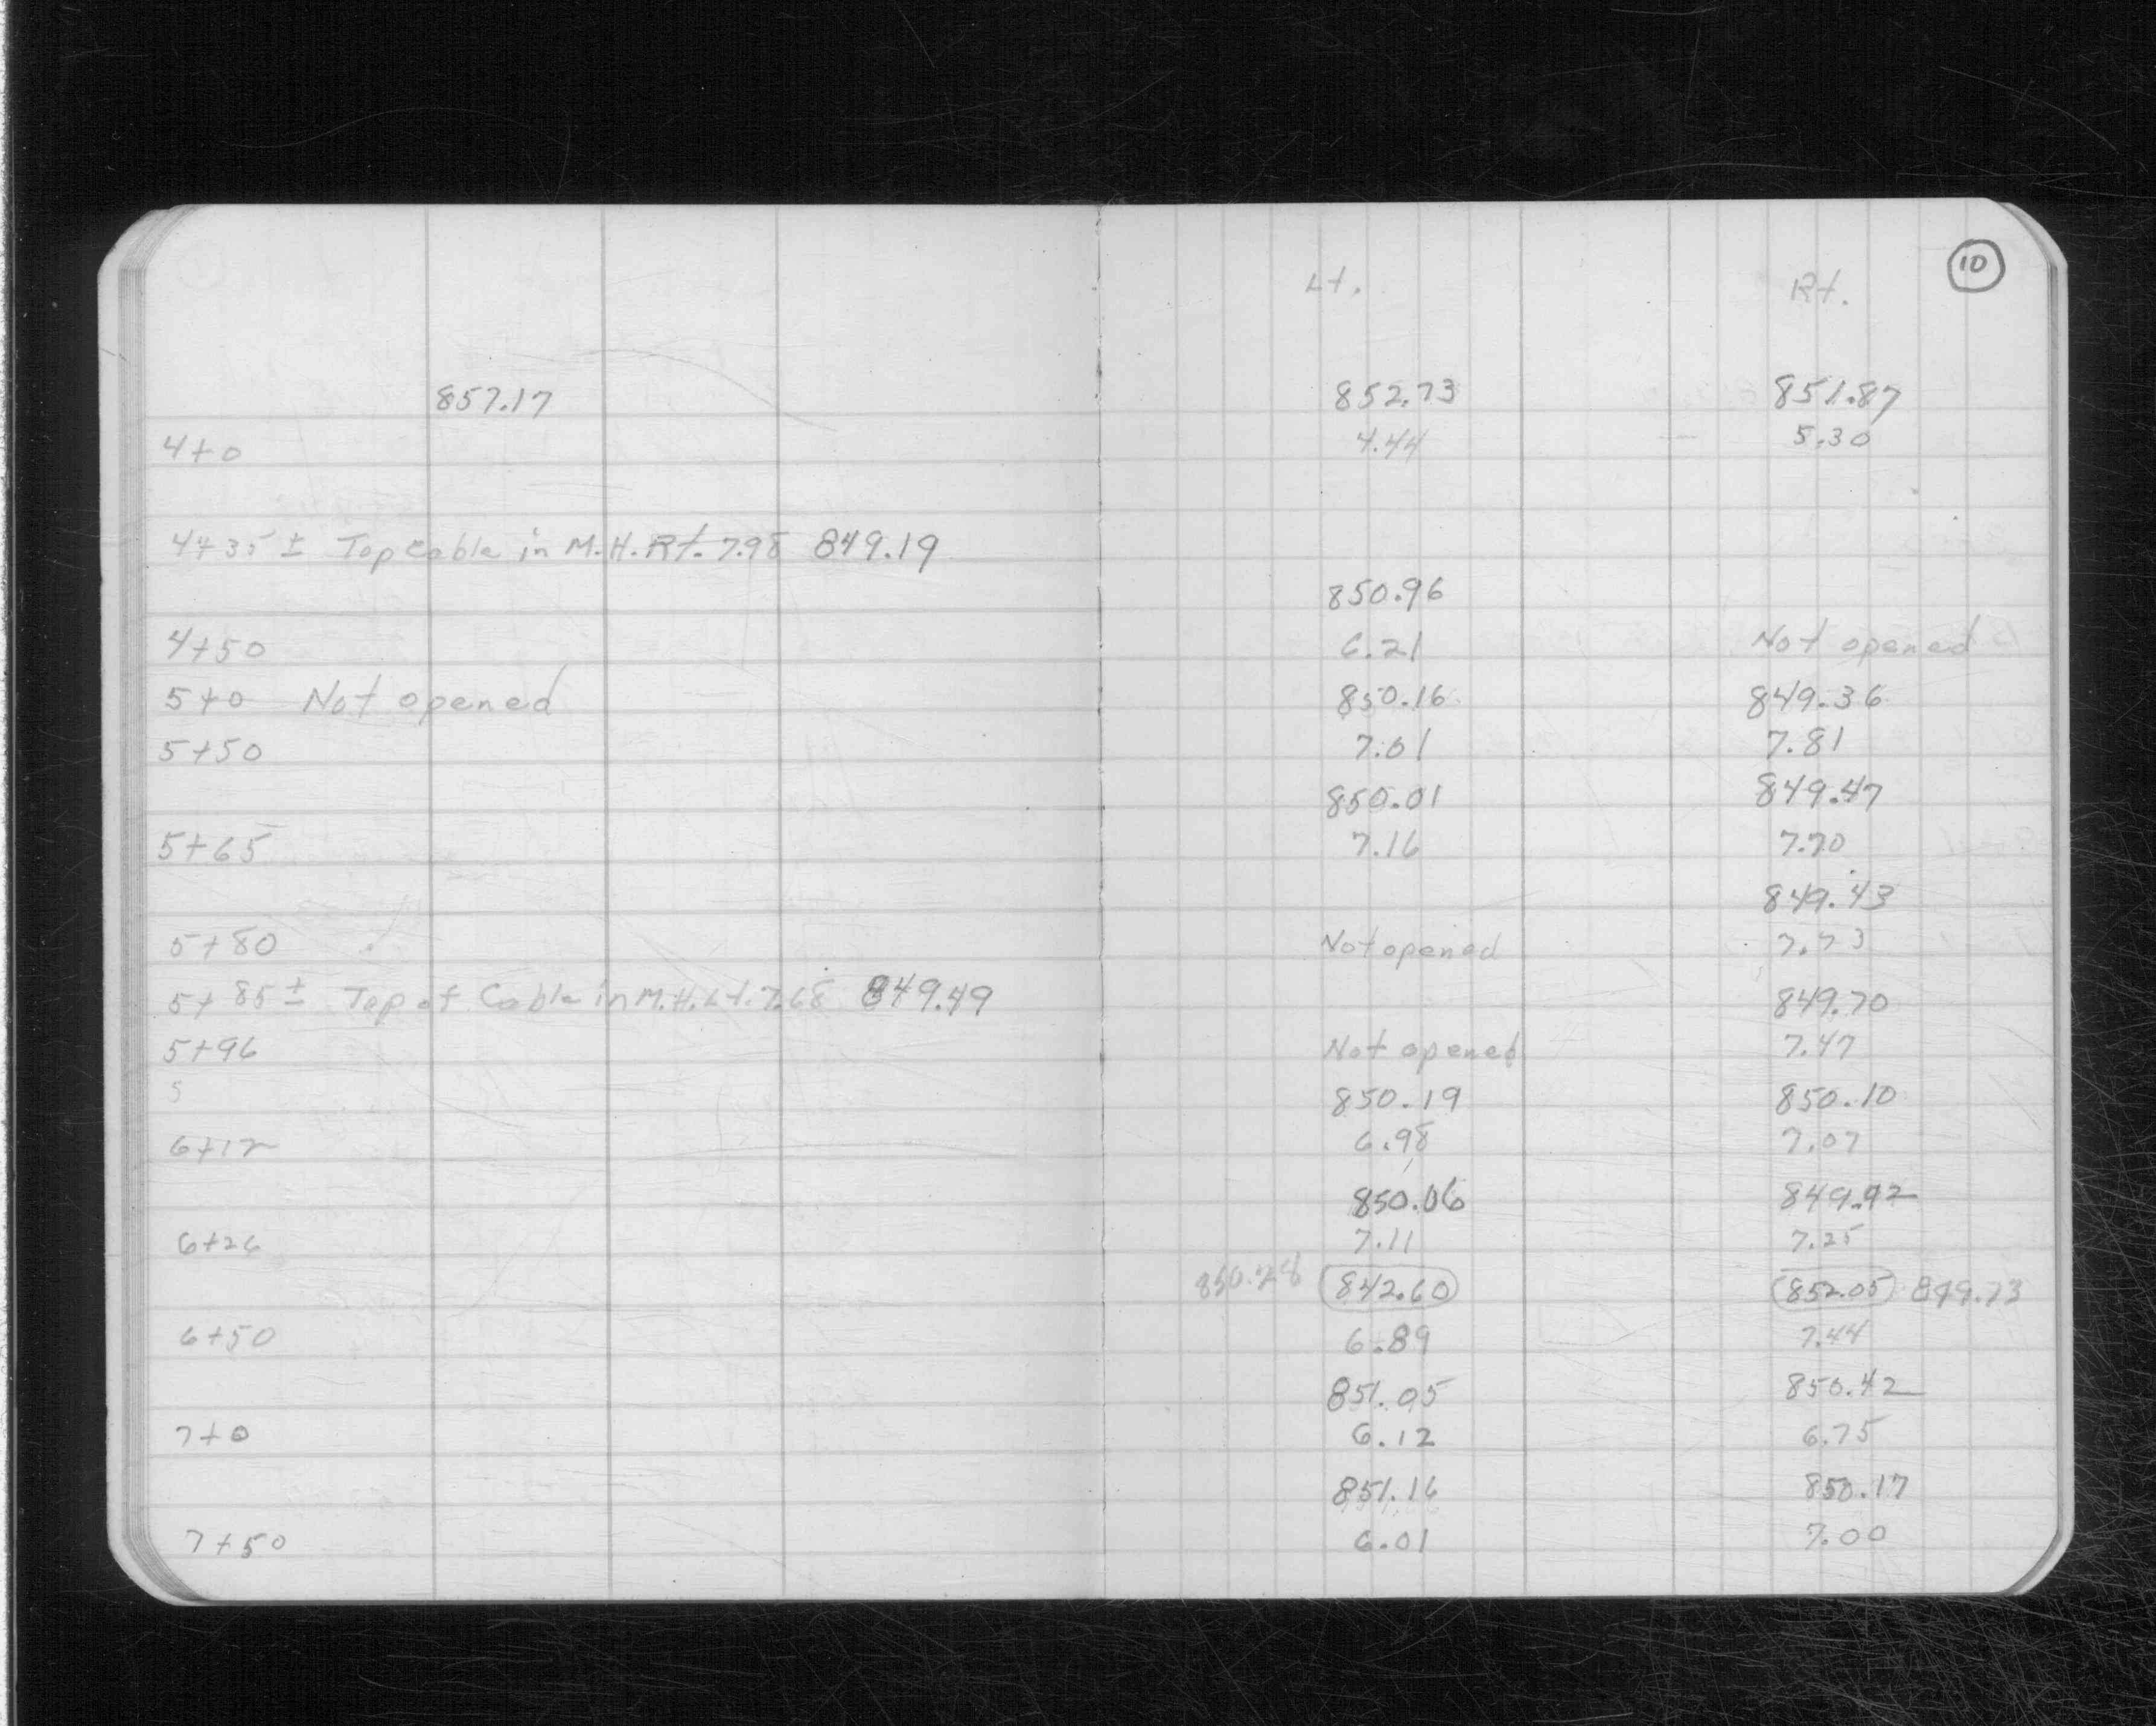 10
Lt. Rt.
857.17 852.73 851.87
4+0 4.44 5.30
4+35 ± Top cable in M.H. Rt. 7.98 849.19
850.96
4+50 6.21 Not opened
5+0 Not opened 850.16 849.36
5+50 7.01 7.81
850.01 849.47
5+65 7.16 7.70
849.43
5+80 Not opened 7.73
5+85 ± Top of Cable in M.H. Lt. 7.68 849.49 849.70
5+96 Not opened 7.47
5 850.19 850.10
6+12 6.98 7.07
850.06 849.92
6+26 7.11 7.25
850.28 842.60 852.05 849.73
6+50 6.89 7.44
851.05 850.42
7+0 6.12 6.75
851.16 850.17
7+50 6.01 7.00